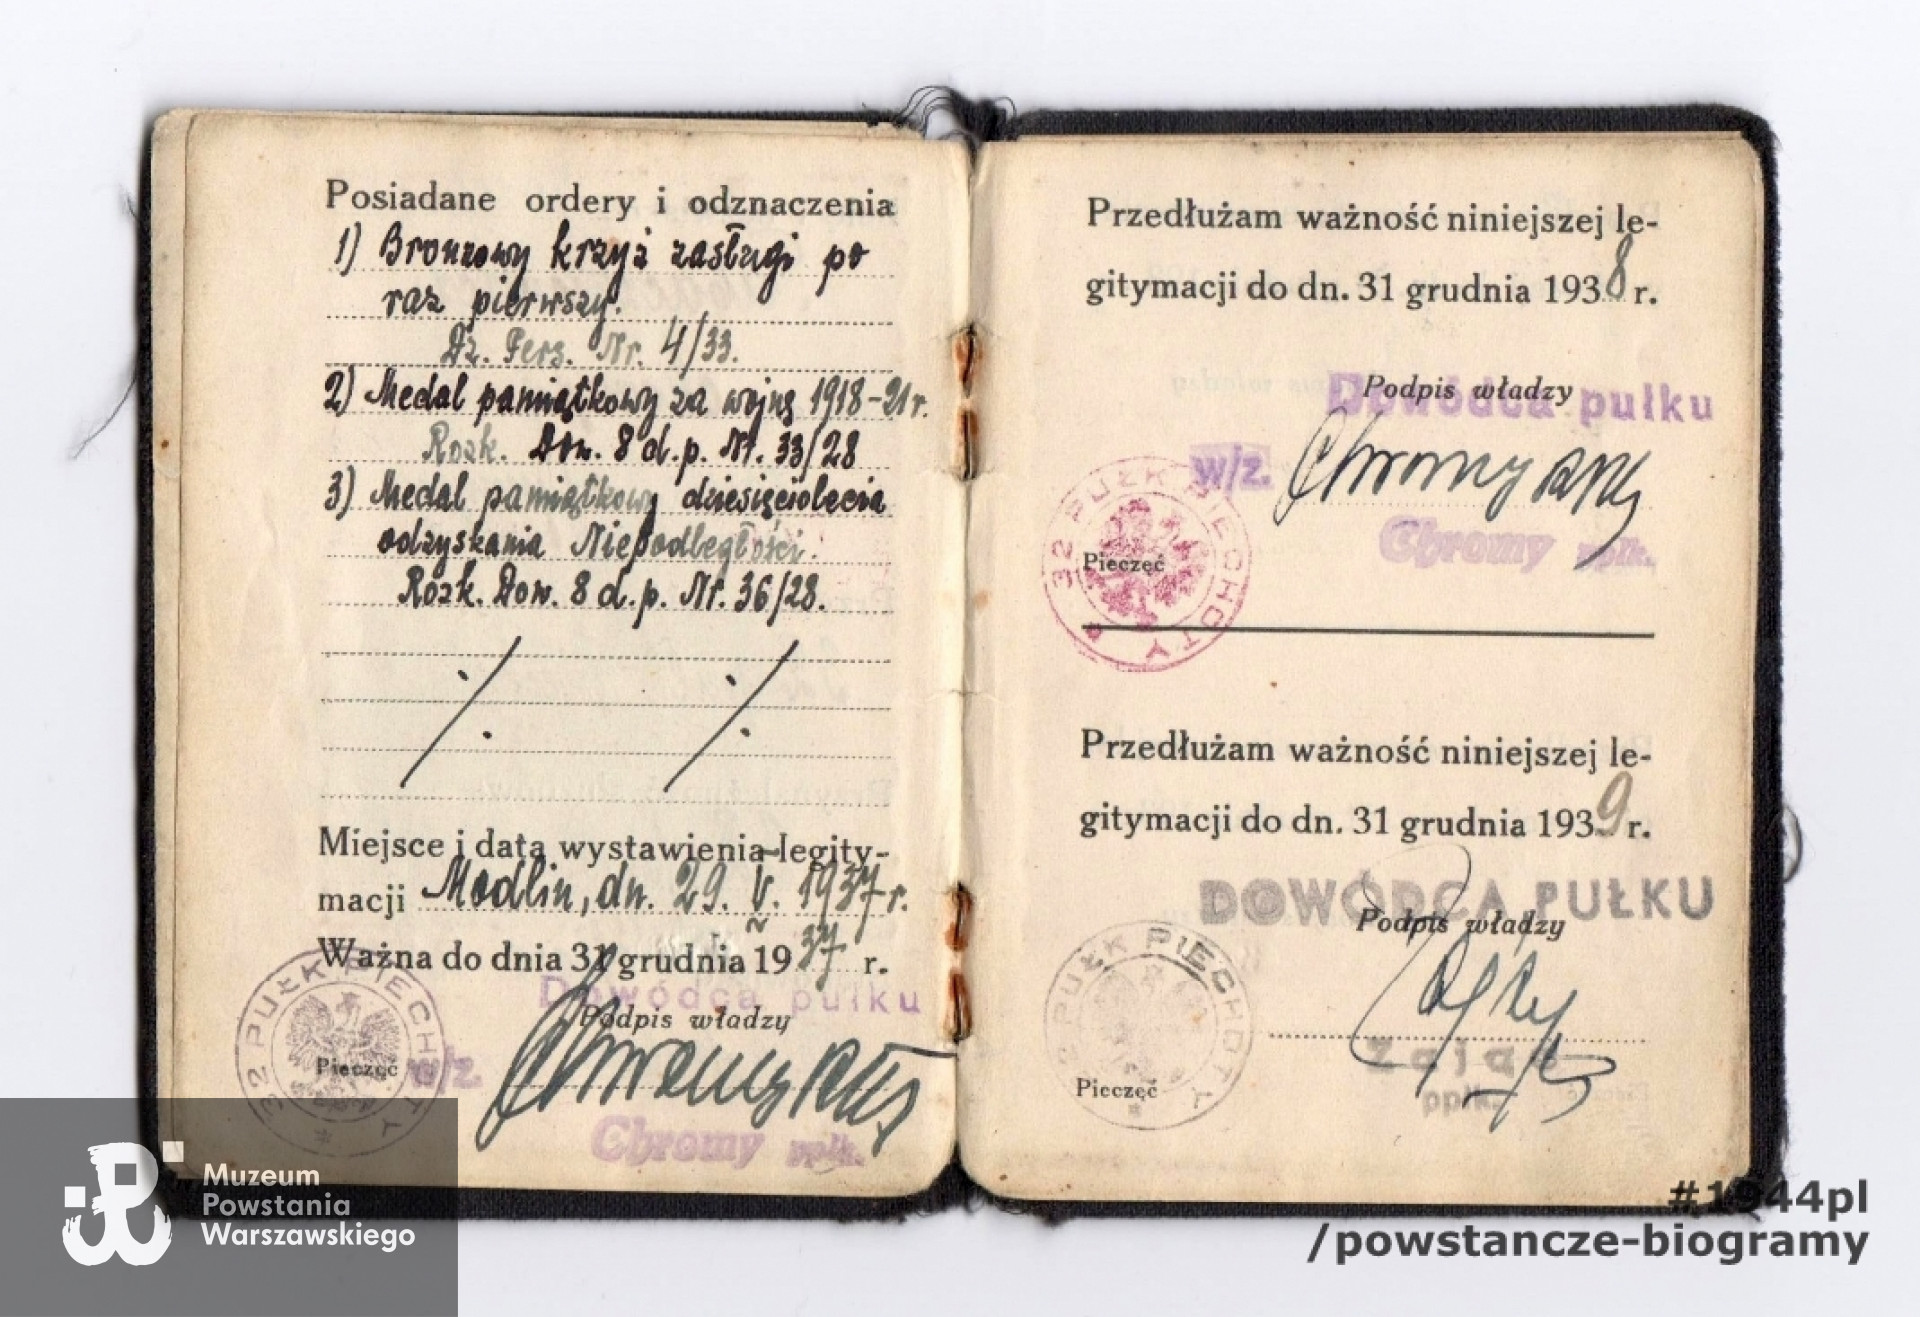 Posiadane ordery i odznaczenia
1) Bronzowy krzyż zasługi po
raz pierwszy.
Dz. Pers. Nr. 4/33.
2) Medal pamiątkowy za wojnę 1918-21 r.
Rozk. Dow. 8 d.p. Nr. 33/28
3) Medal pamiątkowy dziesięciolecia
odzyskania Niepodległości.
Rozk. Dow. 8 d.p. Nr. 36/28.
Miejsce i data wystawienia legity-
macji Modlin, dn. 29. V. 1937 r.
Ważna do dnia 31 grudnia 1937 r.
Dowódca pułku
Podpis władzy
32 PUŁK PIECHOTY
Pieczęć
w/z.
Chromy ppłk.
Chromy ppłk.
Przedłużam ważność niniejszej le-
gitymacji do dn. 31 grudnia 1938 r.
Podpis władzy
Dowódca pułku
w/z.
Chromy ppłk
32 PUŁK PIECHOTY
Pieczęć
Chromy ppłk.
Przedłużam ważność niniejszej le-
gitymacji do dn. 31 grudnia 1939 r.
DOWÓDCA PUŁKU
Podpis władzy
32 PUŁK PIECHOTY
Pieczęć
Zając
ppłk.
Muzeum
Powstania
Warszawskiego
#1944pl
/powstancze-biogramy